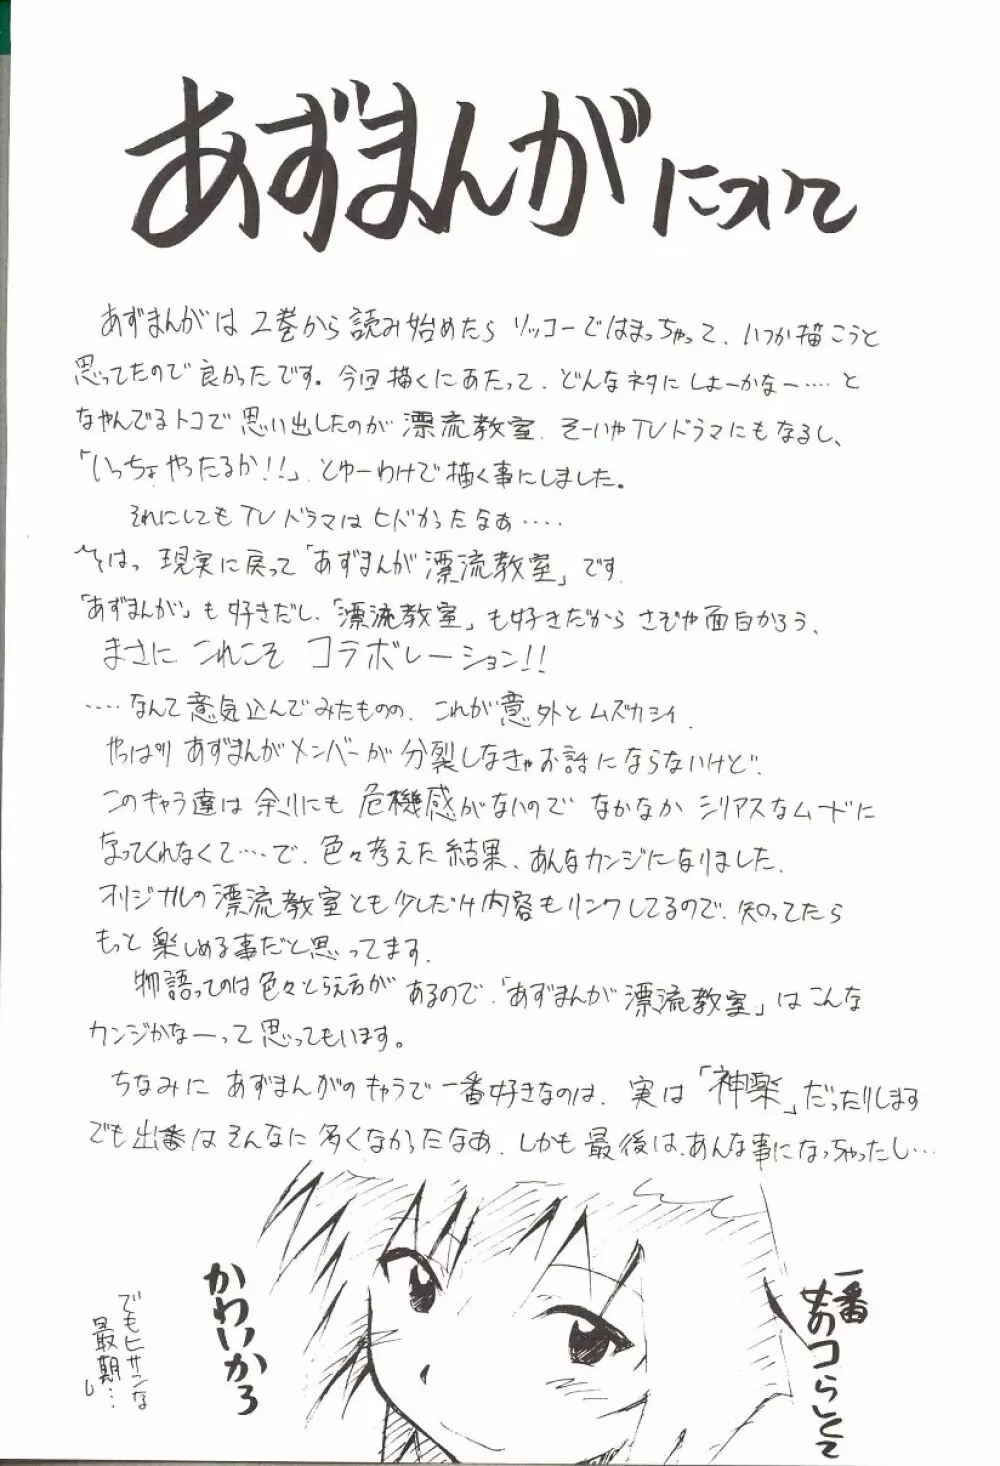 あずまんがについて
あずまんがは2巻から読み始めたら リッコーではまっちゃって、いつか描こうと
思ってたので良かったです。今回描くにあたって、どんなネタにしよーかなー‥‥と
なやんでるトコで思い出したのが漂流教室、そーいやTVドラマにもなるし、
「いっちょやったるか!!」とゆーわけで描く事にしました。
それにしてもTVドラマはヒドかったなぁ‥‥
現実に戻って「あずまんが漂流教室」です
「あずまんが」も好きだし、「漂流教室」も好きだからさぞや面白かろう、
まさにこれこそ コラボレーション!!
‥‥なんて意気込んでみたものの、これが意外とムズカシイ、
やっぱりあずまんがメンバーが分裂しなきゃお話にならないけど、
このキャラ達は余りにも危機感がないので なかなか シリアスなムードに
なってくれなくて‥‥で、色々考えた結果、あんなカンジになりました、
オリジナルの漂流教室とも少しだけ内容もリンクしてるので、知ってたら
もっと楽しめる事だと思ってます、
物語ってのは色々とらえ方があるので、「あずまんが漂流教室」はこんな
カンジかなーって思ってもいます。
ちなみに あずまんがのキャラで一番好きなのは、実は「神楽」だったりします
でも出番はそんなに多くなかったなあ、しかも最後は、あんな事になっちゃったし‥‥
一番
オコらしくて
かわいかろ
でもヒサンな
最期‥‥